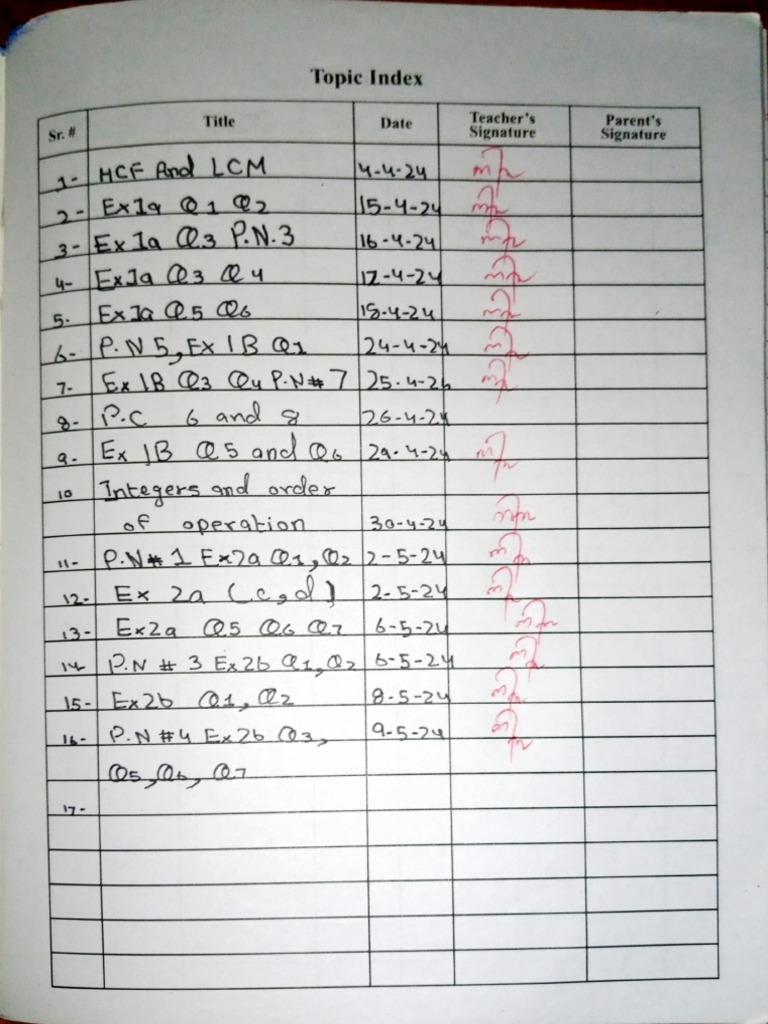 Topic Index
Sr. # Title Date Teacher's Signature Parent's Signature
1- HCF And LCM 4-4-24
2- Ex1a Q1 Q2 15-4-24
3- Ex1a Q3 P.N.3 16-4-24
4- Ex1a Q3 Q4 17-4-24
5. Ex1a Q5 Q6 18-4-24
6- P.N 5, Ex 1B Q1 24-4-24
7. Ex 1B Q3 Q4 P.N# 7 25.4-24
8- P.C 6 and 8 26-4-24
9. Ex 1B Q5 and Q6 29-4-24
10 Integers and order
of operation 30-4-24
11- P.N# 1 Ex2a Q1, Q2 2-5-24
12- Ex 2a (c, d) 2-5-24
13- Ex2a Q5 Q6 Q7 6-5-24
14 P.N # 3 Ex2b Q1, Q2 6-5-24
15- Ex2b Q1, Q2 8-5-24
16- P.N #4 Ex2b Q3, 9-5-24
Q5, Q6, Q7
17-